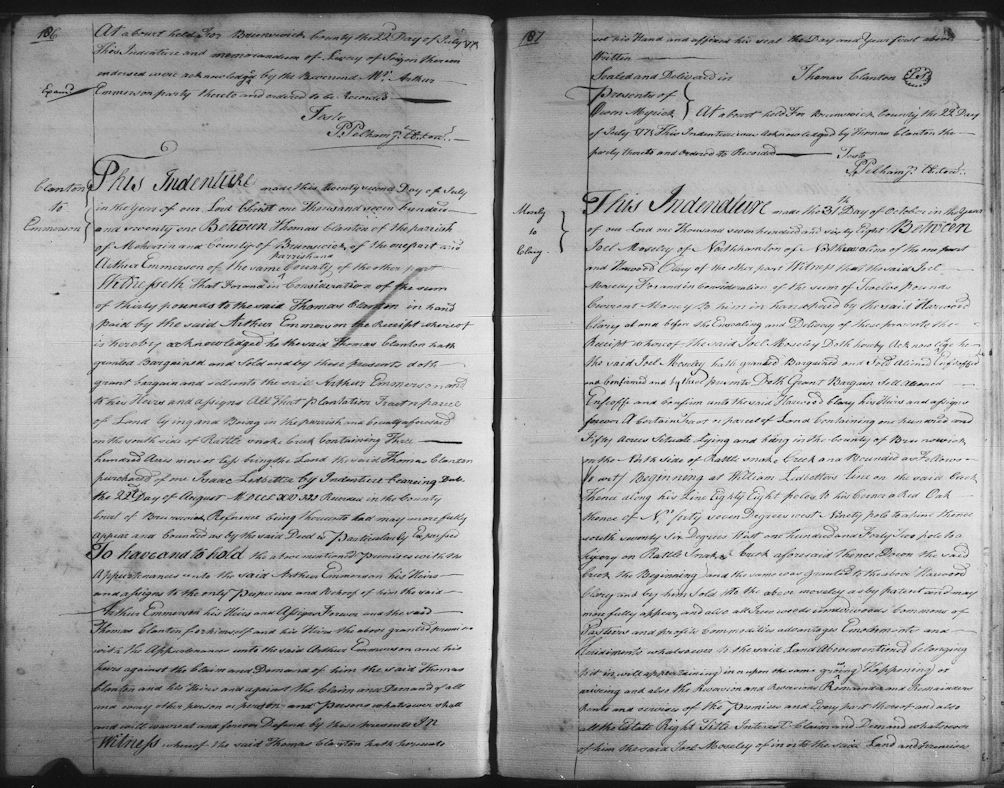 186
At a Court held For Brunswick County the 22 Day of July 1771
This Indenture and memorandum of Livery of Seizen thereon
endorsed were acknowledged by the Reverend Mr. Arthur
Emmerson party thereto and ordered to be Recorded
Examd
Teste
P Pelham Jr. Cl. Cur.
Clanton
to
Emmerson
This Indenture made this twenty second Day of July
in the Year of our Lord Christ one Thousand seven hundred
and seventy one Between Thomas Clanton of the parrish
of Meherrin and County of Brunswick of the one part and
parrish and
Arthur Emmerson of the same County of the other part
Witnesseth that for and in Consideration of the sum
of thirty pounds to the said Thomas Clanton in hand
paid by the said Arthur Emmerson the Receipt whereof
is hereby acknowledged he the said Thomas Clanton hath
granted Bargained and Sold and by these presents doth
grant bargain and sell unto the said Arthur Emmerson and
to his Heirs and assigns All That plantation Tract or parcel
of Land lying and Being in the parrish and County aforesaid
on the south side of Rattle snake Creek Containing Three
hundred Acres more or less being the Land the said Thomas Clanton
purchased of one Isaac Ledbetter by Indenture bearing Date
the 22d Day of August Recorded in the County
Court of Brunswick Reference being thereunto had may more fully
appear and bounded as by the said Deed is particularly Expressed
To have and to hold the above mentioned Premises with the
Appurtenances unto the said Arthur Emmerson his Heirs
and assigns to the only Purpose use and Behoof of him the said
Arthur Emmerson his Heirs and Assigns Forever and the said
Thomas Clanton for himself and his Heirs the above granted premises
with the Appurtenances unto the said Arthur Emmerson and his
heirs against the Claim and Demand of him the said Thomas
Clanton and his Heirs and against the Claim and Demand of all
and every other person or persons and Persons whatsoever shall
and will warrant and forever Defend by these presents In
Witness whereof the said Thomas Clanton hath hereunto
187
set his Hand and affixed his seal the Day and Year first above
Written
Sealed and Delivered in Thomas Clanton L.S.
Presents of
Owen Myrick At a Court held For Brunswick County the 22d Day
of July 1771 This Indenture was acknowledged by Thomas Clanton the
party thereto and ordered to Recorded Teste
P Pelham Jr. Cl. Cur.
Mosely
to
Clary
This Indendture made the 31th Day of October in the Year
of our Lord one Thousand seven hundred and sixty Eight Between
Joel Mosely of Northhamton of North carolina of the one part
and Harwood Clary of the other part Witness that the said Joel
Moseley For and in Consideration of the sum of Twelve pound
Current Money to him in hand paid by the said Harwood
Clary at and before the Ensealing and Delivery of these presents the
Receipt whereof the said Joel Moseley Doth hereby Acknowledge he
the said Joel Moseley hath granted Bargained and Sold aliened Enfeoffed
and Confirmed and by these presents Doth Grant Bargain Sell aliened
Enfeoff and Confirm unto the said Harwood Clary his Heirs and assigns
forever A Certain Tract or parcel of Land Containing one hundred and
Fifty Acres Situate Lying and being in the County of Brunswick
on the North side of Rattle snake Creek and Bounded as Follows
To wit Beginning at William Ledbetters line on the said Creek
Thence along his Line Eighty Eight poles to his Corner a Red Oak
thence of No. forty seven Degrees west Ninety pole to a pine thence
south twenty Six Degrees West one hundred and Forty Two pole to a
hiccory on Rattle Snake Creek aforesaid thence Down the said
Creek the Beginning and the same was granted to the above Harwood
Clary and by him Sold to the above moseley as by patent and may
more fully appear, and also all Trees woods underwoods Commons of
Pasture and profits Commodities advantages Emoluments and
whatsoever to the said Land Abovementioned belonging
in upon the same growing Happening or
arising and also the Reversion and Reversions Remainder and Remainders
Rents and services of the Premises and Every part thereof and also
all the Estate Right Title Interest Claim and Demand whatsoever
of him the said Joel Moseley of in or to the said Land and Premises